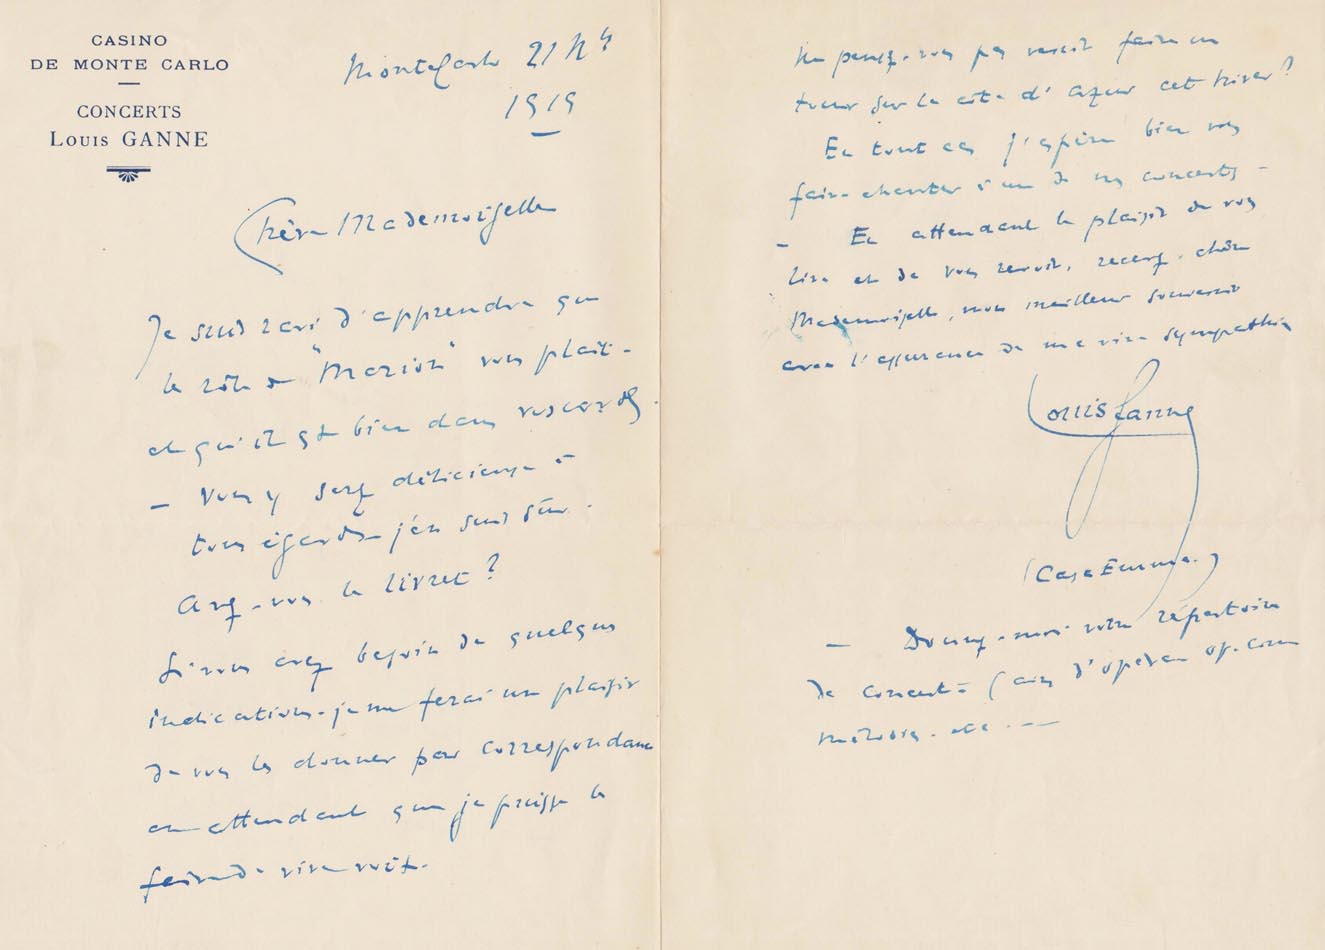 CASINO
DE MONTE CARLO
CONCERTS
LOUIS GANNE
MonteCarlo 21
1919
Chère Mademoiselle
Je suis ravi d'apprendre que
le rôle de "Marion" vous plait -
et qu'il est bien dans vos cordes.
- Vous y serez délicieuse à
tous égards - j'en suis sûr.
Avez-vous le livret ?
Si vous avez besoin de quelques
indications - je me ferai un plaisir
de vous les donner par correspondance
en attendant que je puisse le
faire de vive voix.
Ne pensez-vous pas venir faire un
tour sur la côte d'azur cet hiver ?
En tout cas j'espère bien vous
faire chanter à un de nos concerts -
- En attendant le plaisir de vous
lire et de vous revoir, recevez, chère
Mademoiselle, mon meilleur souvenir
avec l'assurance de ma vive sympathie
Louis Ganne
(Casa Emma.)
- Donnez-moi votre répertoire
de concert - (airs d'opéra op. com
mélodies. etc. -